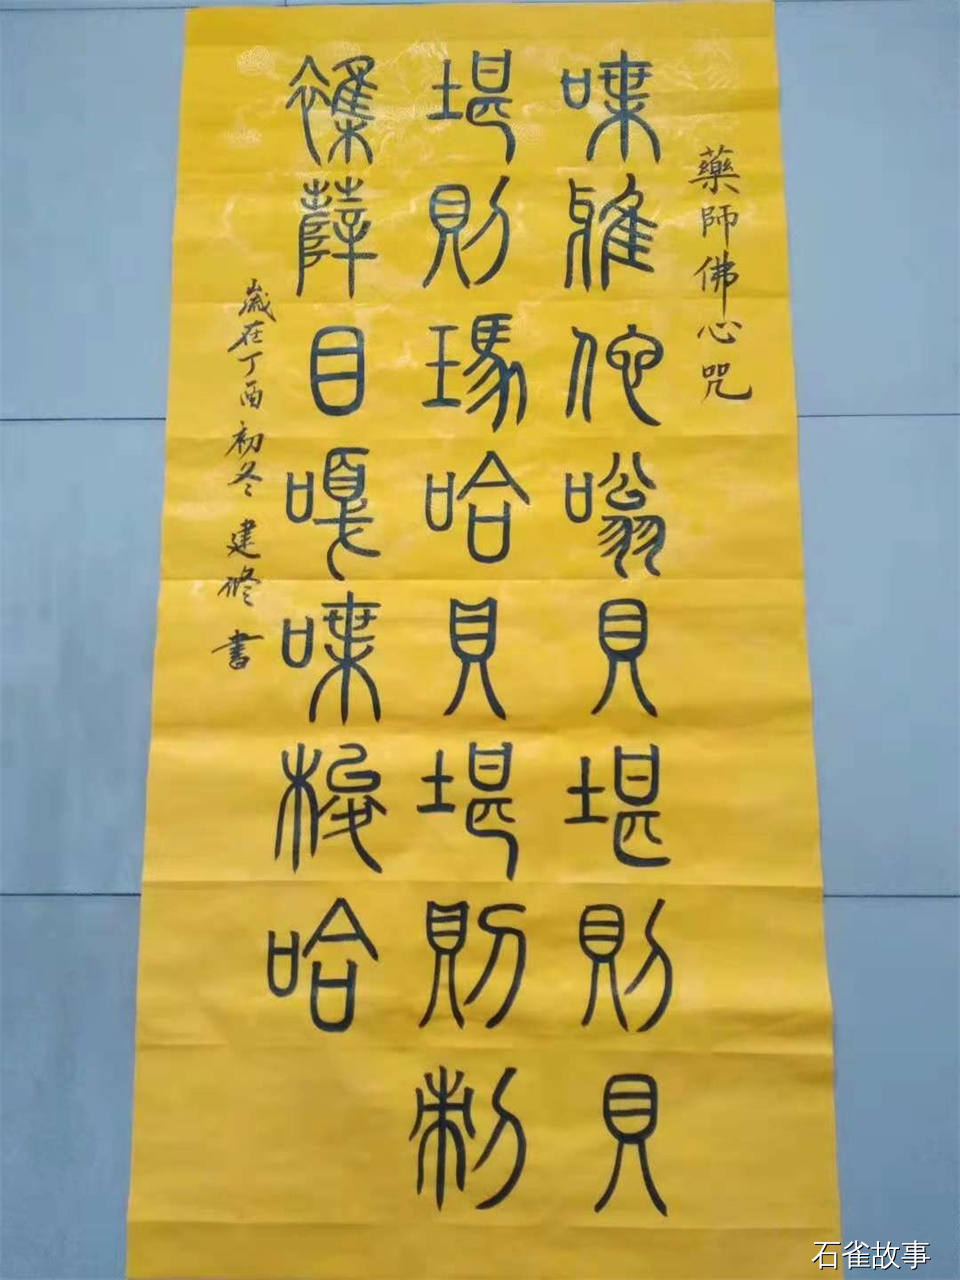 藥師佛心咒
喋雅他嗡貝堪則貝
堪則瑪哈貝堪則剌
雜薩目嘎喋梭哈
歲在丁酉初冬 建修 書
石雀故事